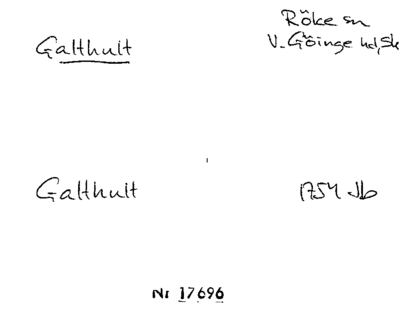 Galthult
Röke sn
V. Göinge hd, Sk
Galthult
1754 Jb
Nr 17696